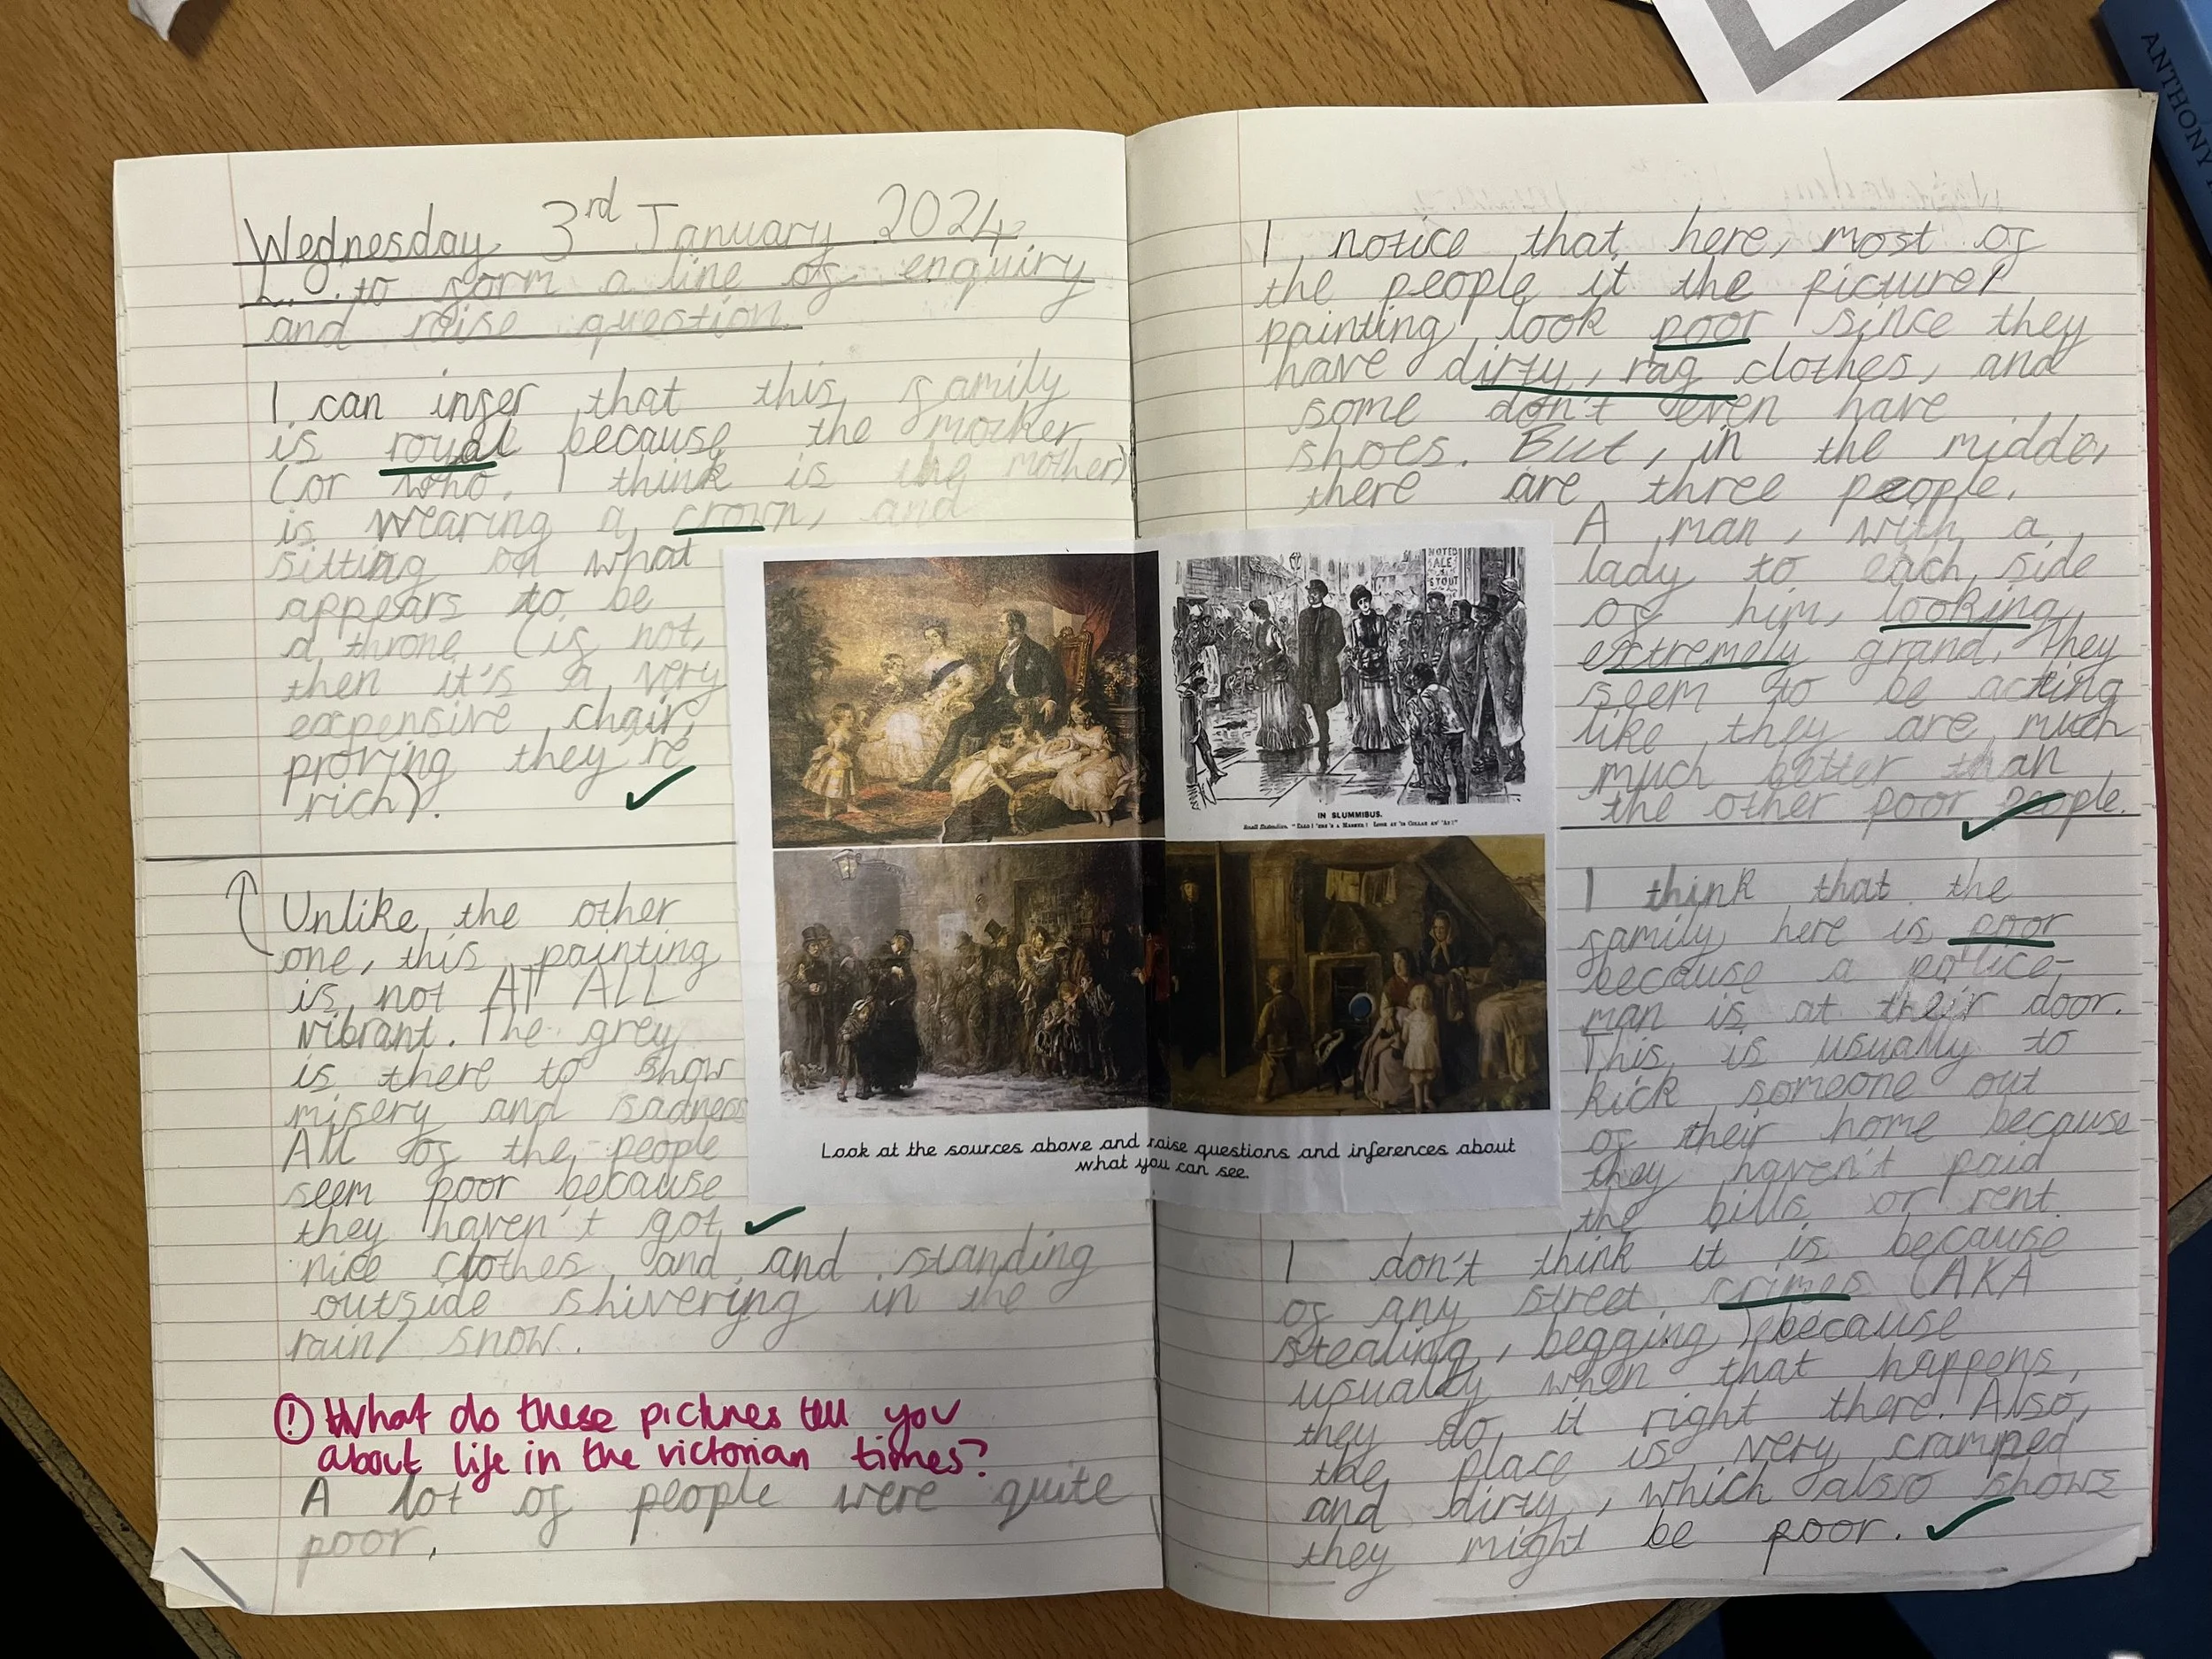 Wednesday 3rd January 2024
L... to form a line of enquiry
and raise question.
I can infer that this family
is royal because the mother
(or who I think is the mother)
is wearing a crown, and
sitting on what
appears to be
a throne (if not,
then it's a very
expensive chair,
proving they're
rich).
Unlike the other
one, this painting
is not AT ALL
vibrant. The grey
is there to show
misery and sadness
All of the people
seem poor because
they haven't got
nice clothes and and standing
outside shivering in the
rain/ snow.
! What do these pictures tell you
about life in the victorian times?
A lot of people were quite
poor.
NOTED
ALE
STOUT
IN SLUMMIBUS.
Look at the sources above and raise questions and inferences about
what you can see.
I notice that here, most of
the people it the picture/
painting look poor since they
have dirty, rag clothes, and
some don't even have
shoes. But, in the middde,
there are three people.
A man, with a
lady to each side
of him, looking
extremely grand. They
seem to be acting
like they are much
much better than
the other poor people.
I think that the
family here is poor
because a police-
man is at their door.
This is usually to
kick someone out
of their home because
they haven't paid
the bills or rent.
I don't think it is because
of any street crimes (AKA
stealing, begging) because
usually when that happens,
they do it right there. Also,
the place is very cramped
and dirty, which also shows
they might be poor.
ANTHONY